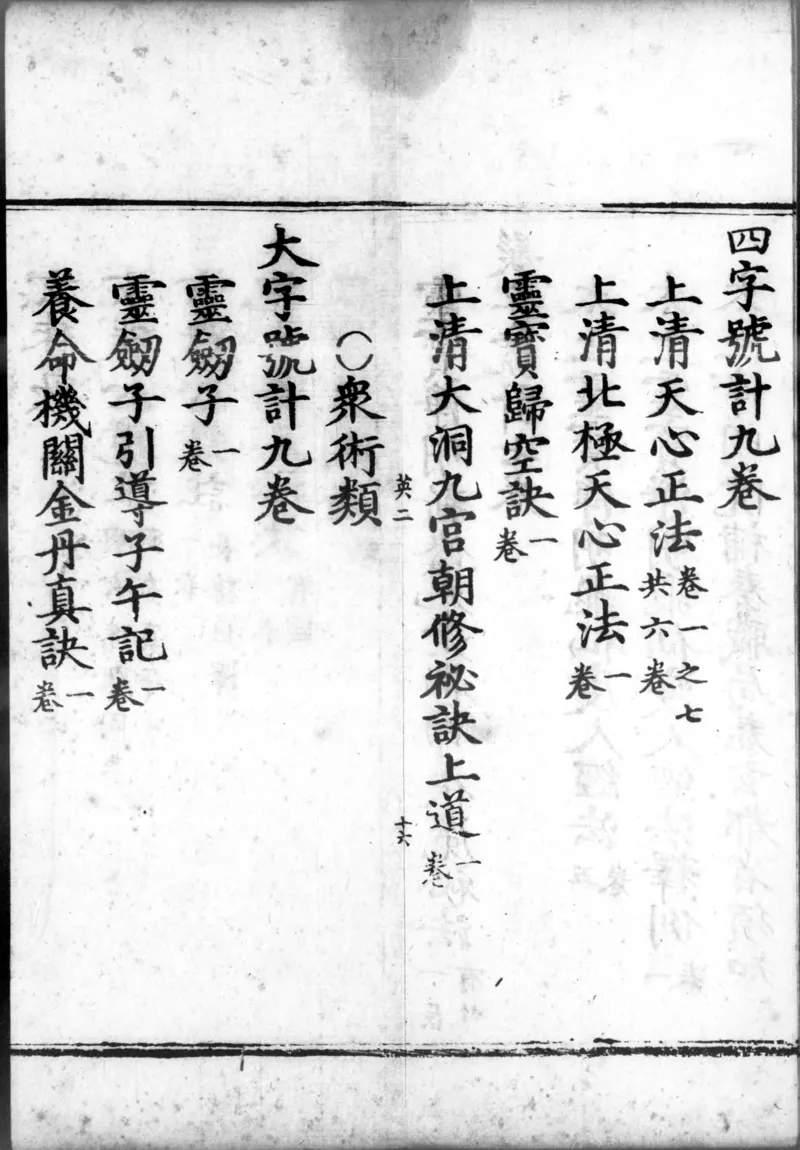 四字號計九卷
上清天心正法卷一之七共六卷
上清北極天心正法一卷
靈寶歸空訣一卷
上清大洞九宮朝修祕訣上道一卷
英二
十六
○衆術類
大字號計九卷
靈劔子一卷
靈劔子引導子午記一卷
養命機關金丹真訣一卷